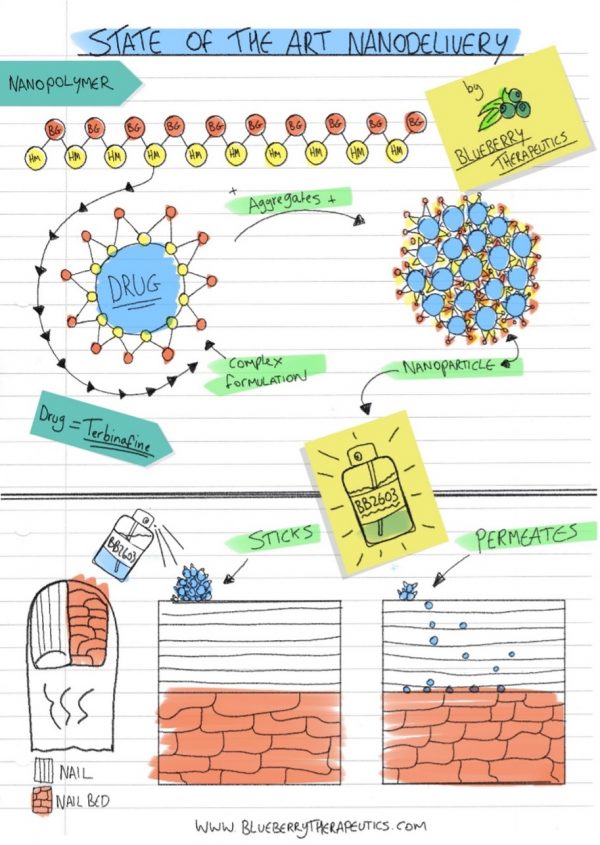 STATE OF THE ART NANODELIVERY
NANOPOLYMER
by
BLUEBERRY
THERAPEUTICS
BG BG BG BG BG BG BG BG BG BG
HM HM HM HM HM HM HM HM HM HM
+ Aggregates +
DRUG
COMPLEX
FORMULATION
NANOPARTICLE
Drug = Terbinafine
BB2603
STICKS
PERMEATES
BB2603
NAIL
NAIL BED
WWW.BLUEBERRYTHERAPEUTICS.COM